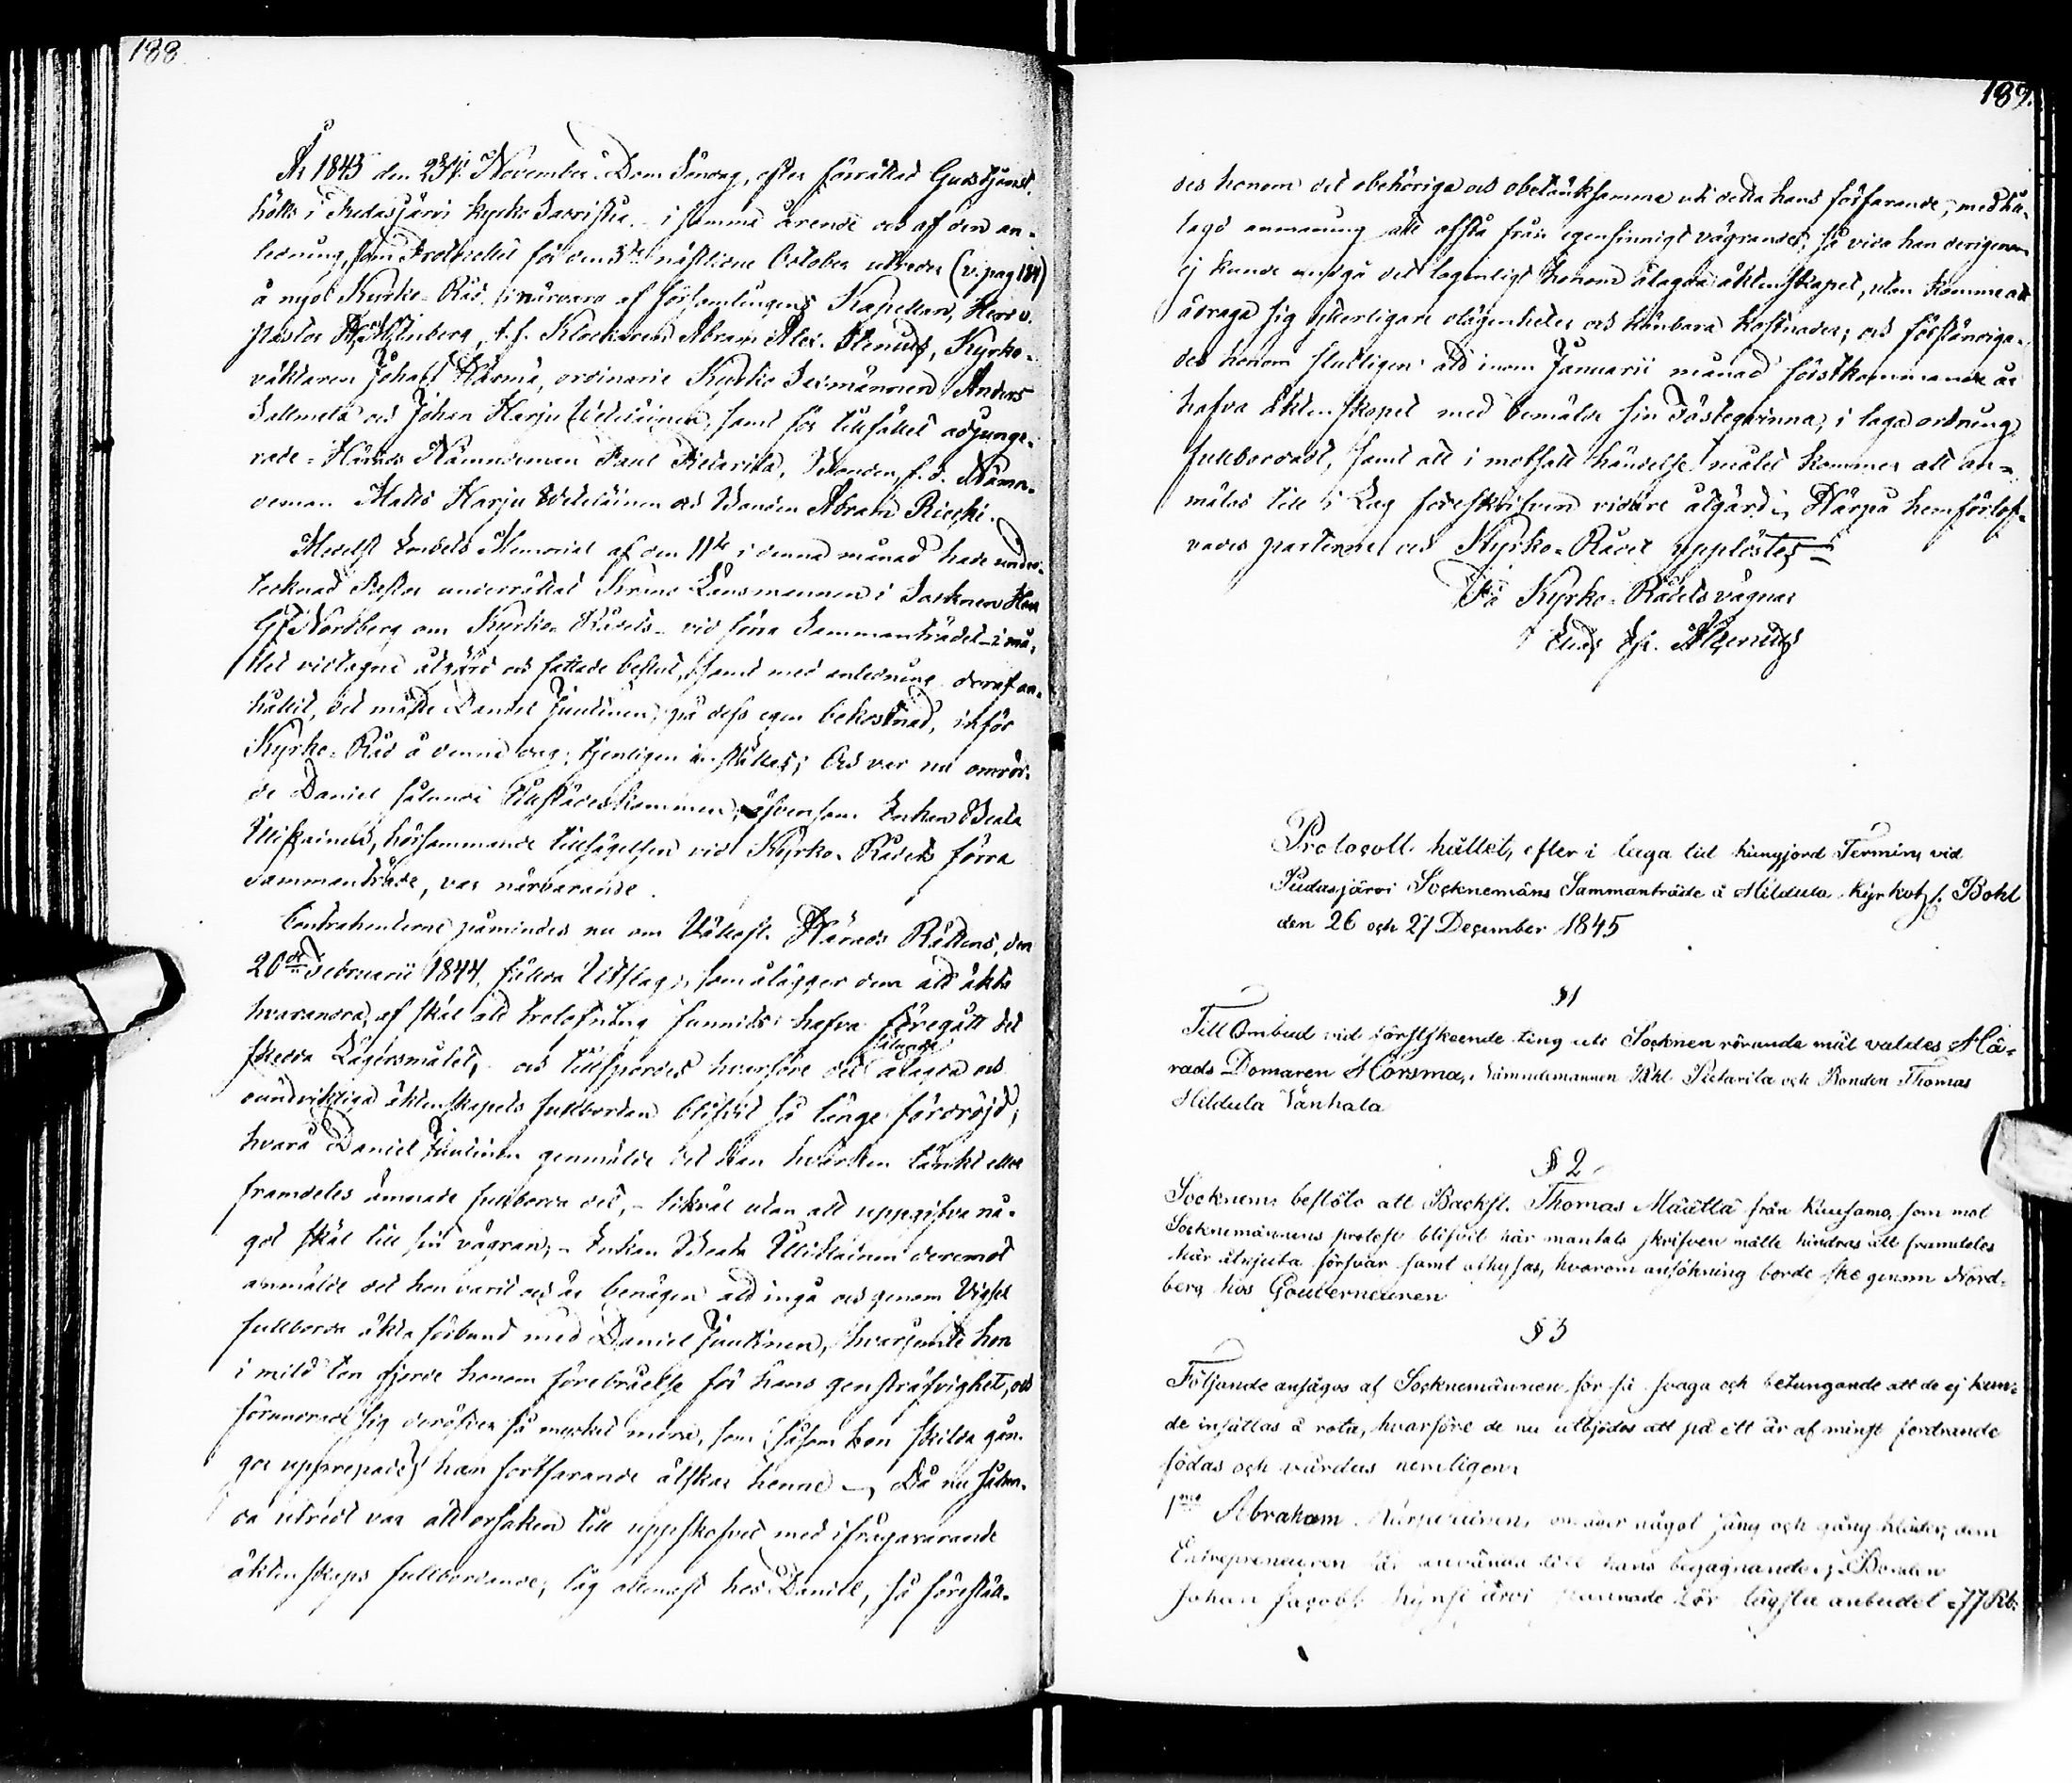 188.
År 1845 den 23dje November, Dom Söndag, efter förrättad Gudstjenst,
hölts i Pudasjärvi Kyrko Sacristia - i samma ärende och af den an-
ledning, som Protocollet för den 5te nästlidne October utreder (v. pag 184)
å nyo Kyrko-Råd, i närvaro af församlingens Kapellan, Herr v.
pastor Hällberg, t.f. Klockaren Abram Alex. Alcenius, Kyrko-
väktaren Johan Härmä, ordinarie Kyrko Sexmännen Anders
Sallmela och Johan Harju Väteläinen, samt för tillfället adjunge-
rade Härads Nämndeman Paul Pietarila, Bonden, f.d. Nämn-
deman Matts Harju Väteläinen och Bonden Abram Riekki.
Medelst Embets Memorial af den 11te i denna månad hade under-
tecknad Pastor underrättat Krono Länsmannen i Socknen Herr
G F Nordberg om Kyrko-Rådets - vid förra Sammanträdet - i må-
let vidtagne åtgärd och fattade beslut, samt med anledning deraf an-
hållit, det måtte Daniel Juutinen, på dess egen bekostnad, inför
Kyrko-Råd å denne dag, tjenligen inställas; Och var nu omrör-
de Daniel sålunda tillstädeskommen, äfvensom Enkan Beata
Ulliskainen, hörsammande tillsägelsen vid Kyrko-Rådets förra
sammanträde, var närvarande.
Contrahenterne påmindes nu om Vällofl. Härads Rättens, den
20de Februarii 1844, fällda Utslag, som ålägger dem att äkta
hvarandra, af skäl att trolofning funnits hafva föregått det
skedda Lägersmålet, och tillspordes hvarföre det sålunda ålagda och
oundvikliga äktenskapets fullbordan blifvit så länge fördröjd;
hvarå Daniel Juutinen genmälde det han hvarken tänkt eller
framdeles ämnade fullborda det, - likväl utan att uppgifva nå-
got skäl till sin vägran, - Enkan Beata Ulliskainen deremot
anmälde det hon varit och är benägen att ingå och genom Vigsel
fullborda äkta förbund med Daniel Juutinen, hvarjemte hon
i mild ton gjorde honom förebråelse för hans gensträfvighet, och
förundrade sig deröfver så mycket mera, som (såsom hon skilda gån-
ger upprepade) han fortfarande älskar henne -, Då nu sålun-
da utredt var att orsaken till uppskofvet med ifrågavarande
äktenskaps fullbordande, låg allenast hos Daniel, så förestäl-
189.
des honom det obehöriga och obetänksamma uti detta hans förfarande, meddela-
lagd anmaning att afstå från egensinnigt vägrande, så vida han derigenom
ej kunde undgå det lagenligt honom ålagda äktenskapet, utan komme att
ådraga sig ytterligare olägenheter och kännbara kostnader; och förständiga-
des honom slutligen att inom Januarii månad förstkommande år
hafva äktenskapet med bemälde sin Fästeqvinna, i laga ordning,
fullbordadt, samt att i motsatt händelse målet kommer att an-
mälas till i Lag föreskrifven vidare åtgärd; Härpå hemförlof-
vades parterna och Kyrko-Rådet upplöstes
På Kyrko-Rådets vägnar
Alcenius
Protocoll hållet, efter i laga tid kungjord Termin, vid
Pudasjärvi Socknemäns Sammanträde å Hildula Kyrkoh.s. Bohl
den 26 och 27 December 1845
§ 1
Till Ombud vid förstskeende ting uti Socknen rörande mål valdes Hä-
rads Domaren Hörsmä, Nämndemannen Påhl Pietarila och Bonden Thomas
Hildula Vanhala
§ 2
Socknem: beslöto att Backst. Thomas Määttä från Kuusamo, som mot
Socknemännens protest blifvit här mantals skrifven måtte hindras att framdeles
här åtnjuta försvar samt afhysas, hvarom ansökning borde ske genom Nord-
berg hos Gouverneuren
§ 3
Följande ansågos af Socknemännen för så svaga och betungande att de ej kun-
de insättas å rota, hvarföre de nu utbjödos att på ett år af minst fordrande
födas och vårdas nemligen
1mo Abraham Kärpeinen, om äger något säng och gång kläder, dem
Entrepreneuren får använda till hans begagnande; Bonden
Johan Jacobs. Kynsijärvi stannade för lägsta anbudet 77 Rb: